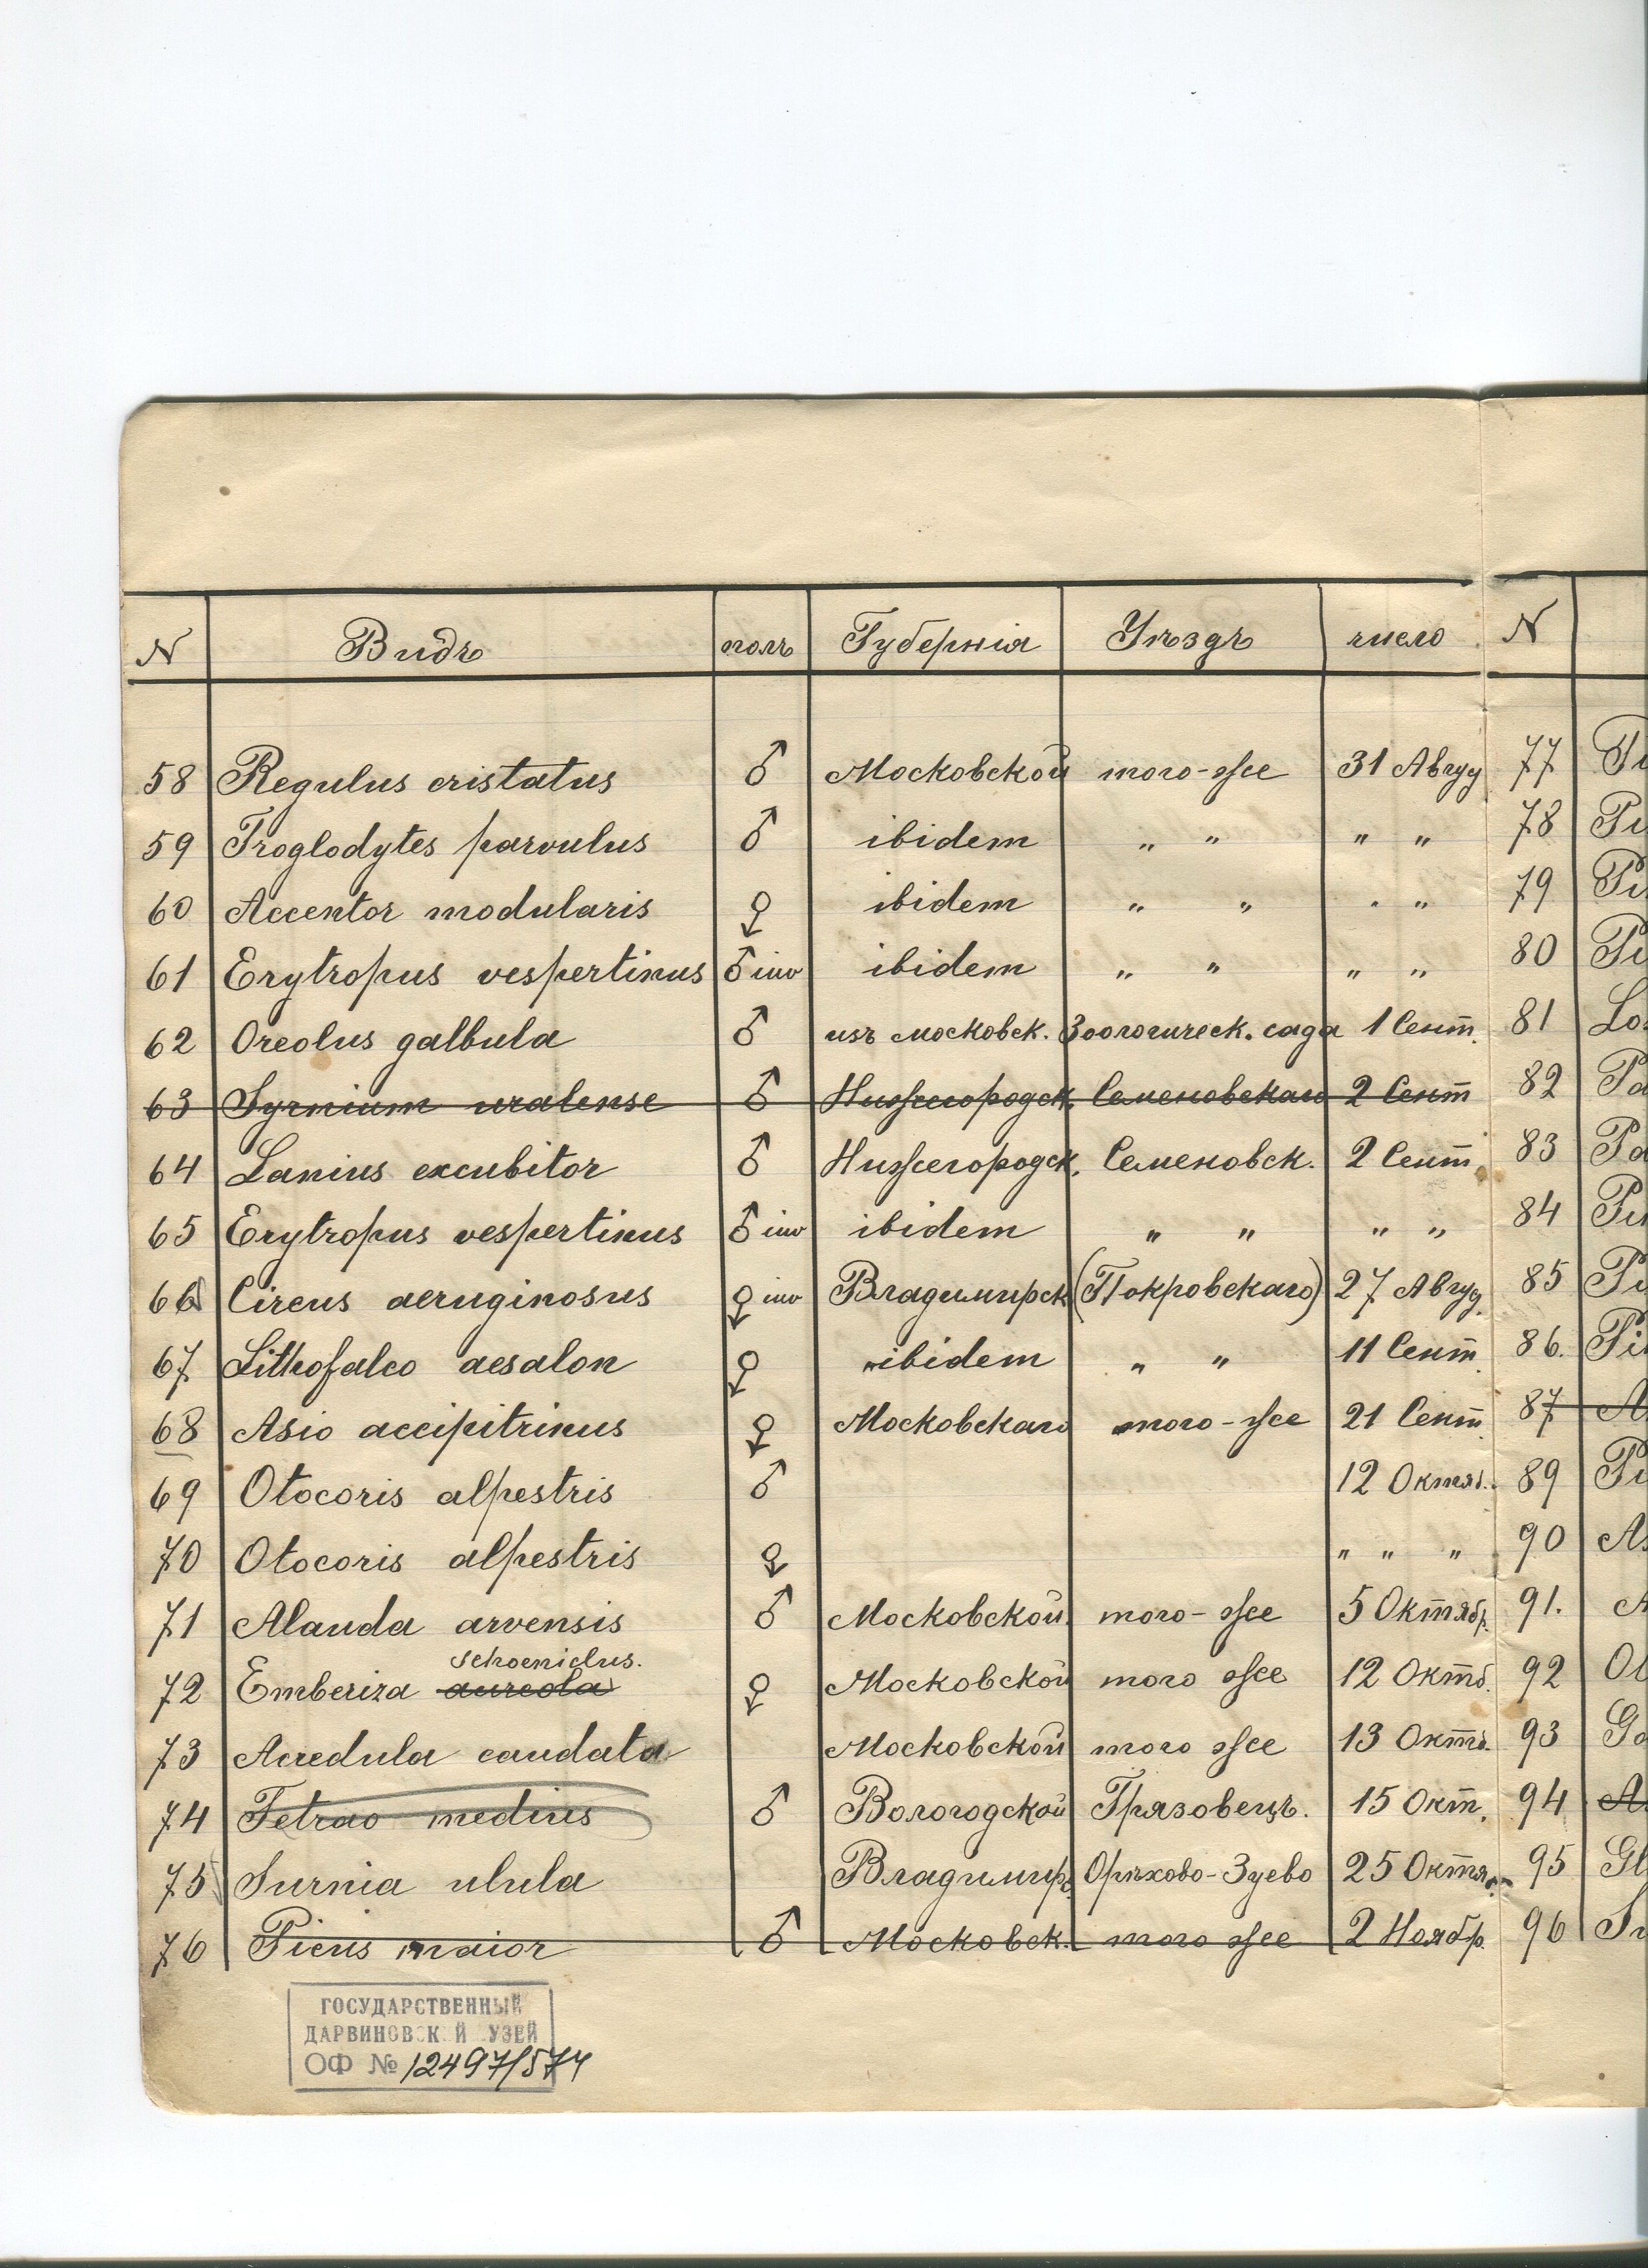 N Видъ полъ Губернія Уѣздъ число N
58 Regulus cristatus ♂ Московской того-же 31 Авгу 77
59 Troglodytes parvulus ♂ ibidem " " " " 78
60 Accentor modularis ♀ ibidem " " " " 79
61 Erytropus vespertinus ♂ iuv ibidem " " " " 80
62 Oreolus galbula ♂ изъ московск. Зоологическ. сада 1 Сент. 81
63 Syrnium uralense ♂ Нижегородск. Семеновскаго 2 Сент 82
64 Lanius excubitor ♂ Нижегородск. Семеновск. 2 Сент. 83
65 Erytropus vespertinus ♂ iuv ibidem " " " " 84
66 Circus aeruginosus ♀ iuv Владимирск (Покровскаго) 27 Авгу. 85
67 Lithofalco aesalon ♀ ibidem " " 11 Сент. 86.
68 Asio accipitrinus ♀ Московскаго того-же 21 Сент. 87
69 Otocoris alpestris ♂ 12 Октяб. 89
70 Otocoris alpestris ♀ " " " 90
71 Alauda arvensis ♂ Московской. того-же 5 Октябр. 91.
schoeniclus.
72 Emberiza aureola ♀ Московской того же 12 Октб. 92
73 Acredula caudata Московской того же 13 Октб. 93
74 Tetrao medius ♂ Вологодской Грязовецъ. 15 Окт. 94
75 Surnia ulula Владимир. Орѣхово-Зуево 25 Октяб. 95
76 Picus maior ♂ Московск. того же 2 Ноябр. 96
ГОСУДАРСТВЕННЫЙ
ДАРВИНОВСКИЙ МУЗЕЙ
ОФ № 12497/574